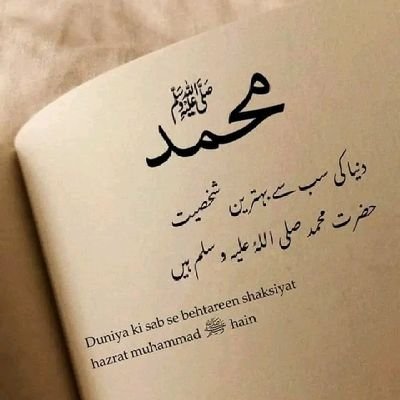 محمد ﷺ
دنیا کی سب سے بہترین شخصیت
حضرت محمد صلی اللہ علیہ و سلم ہیں
Duniya ki sab se behtareen shaksiyat
hazrat muhammad ﷺ hain